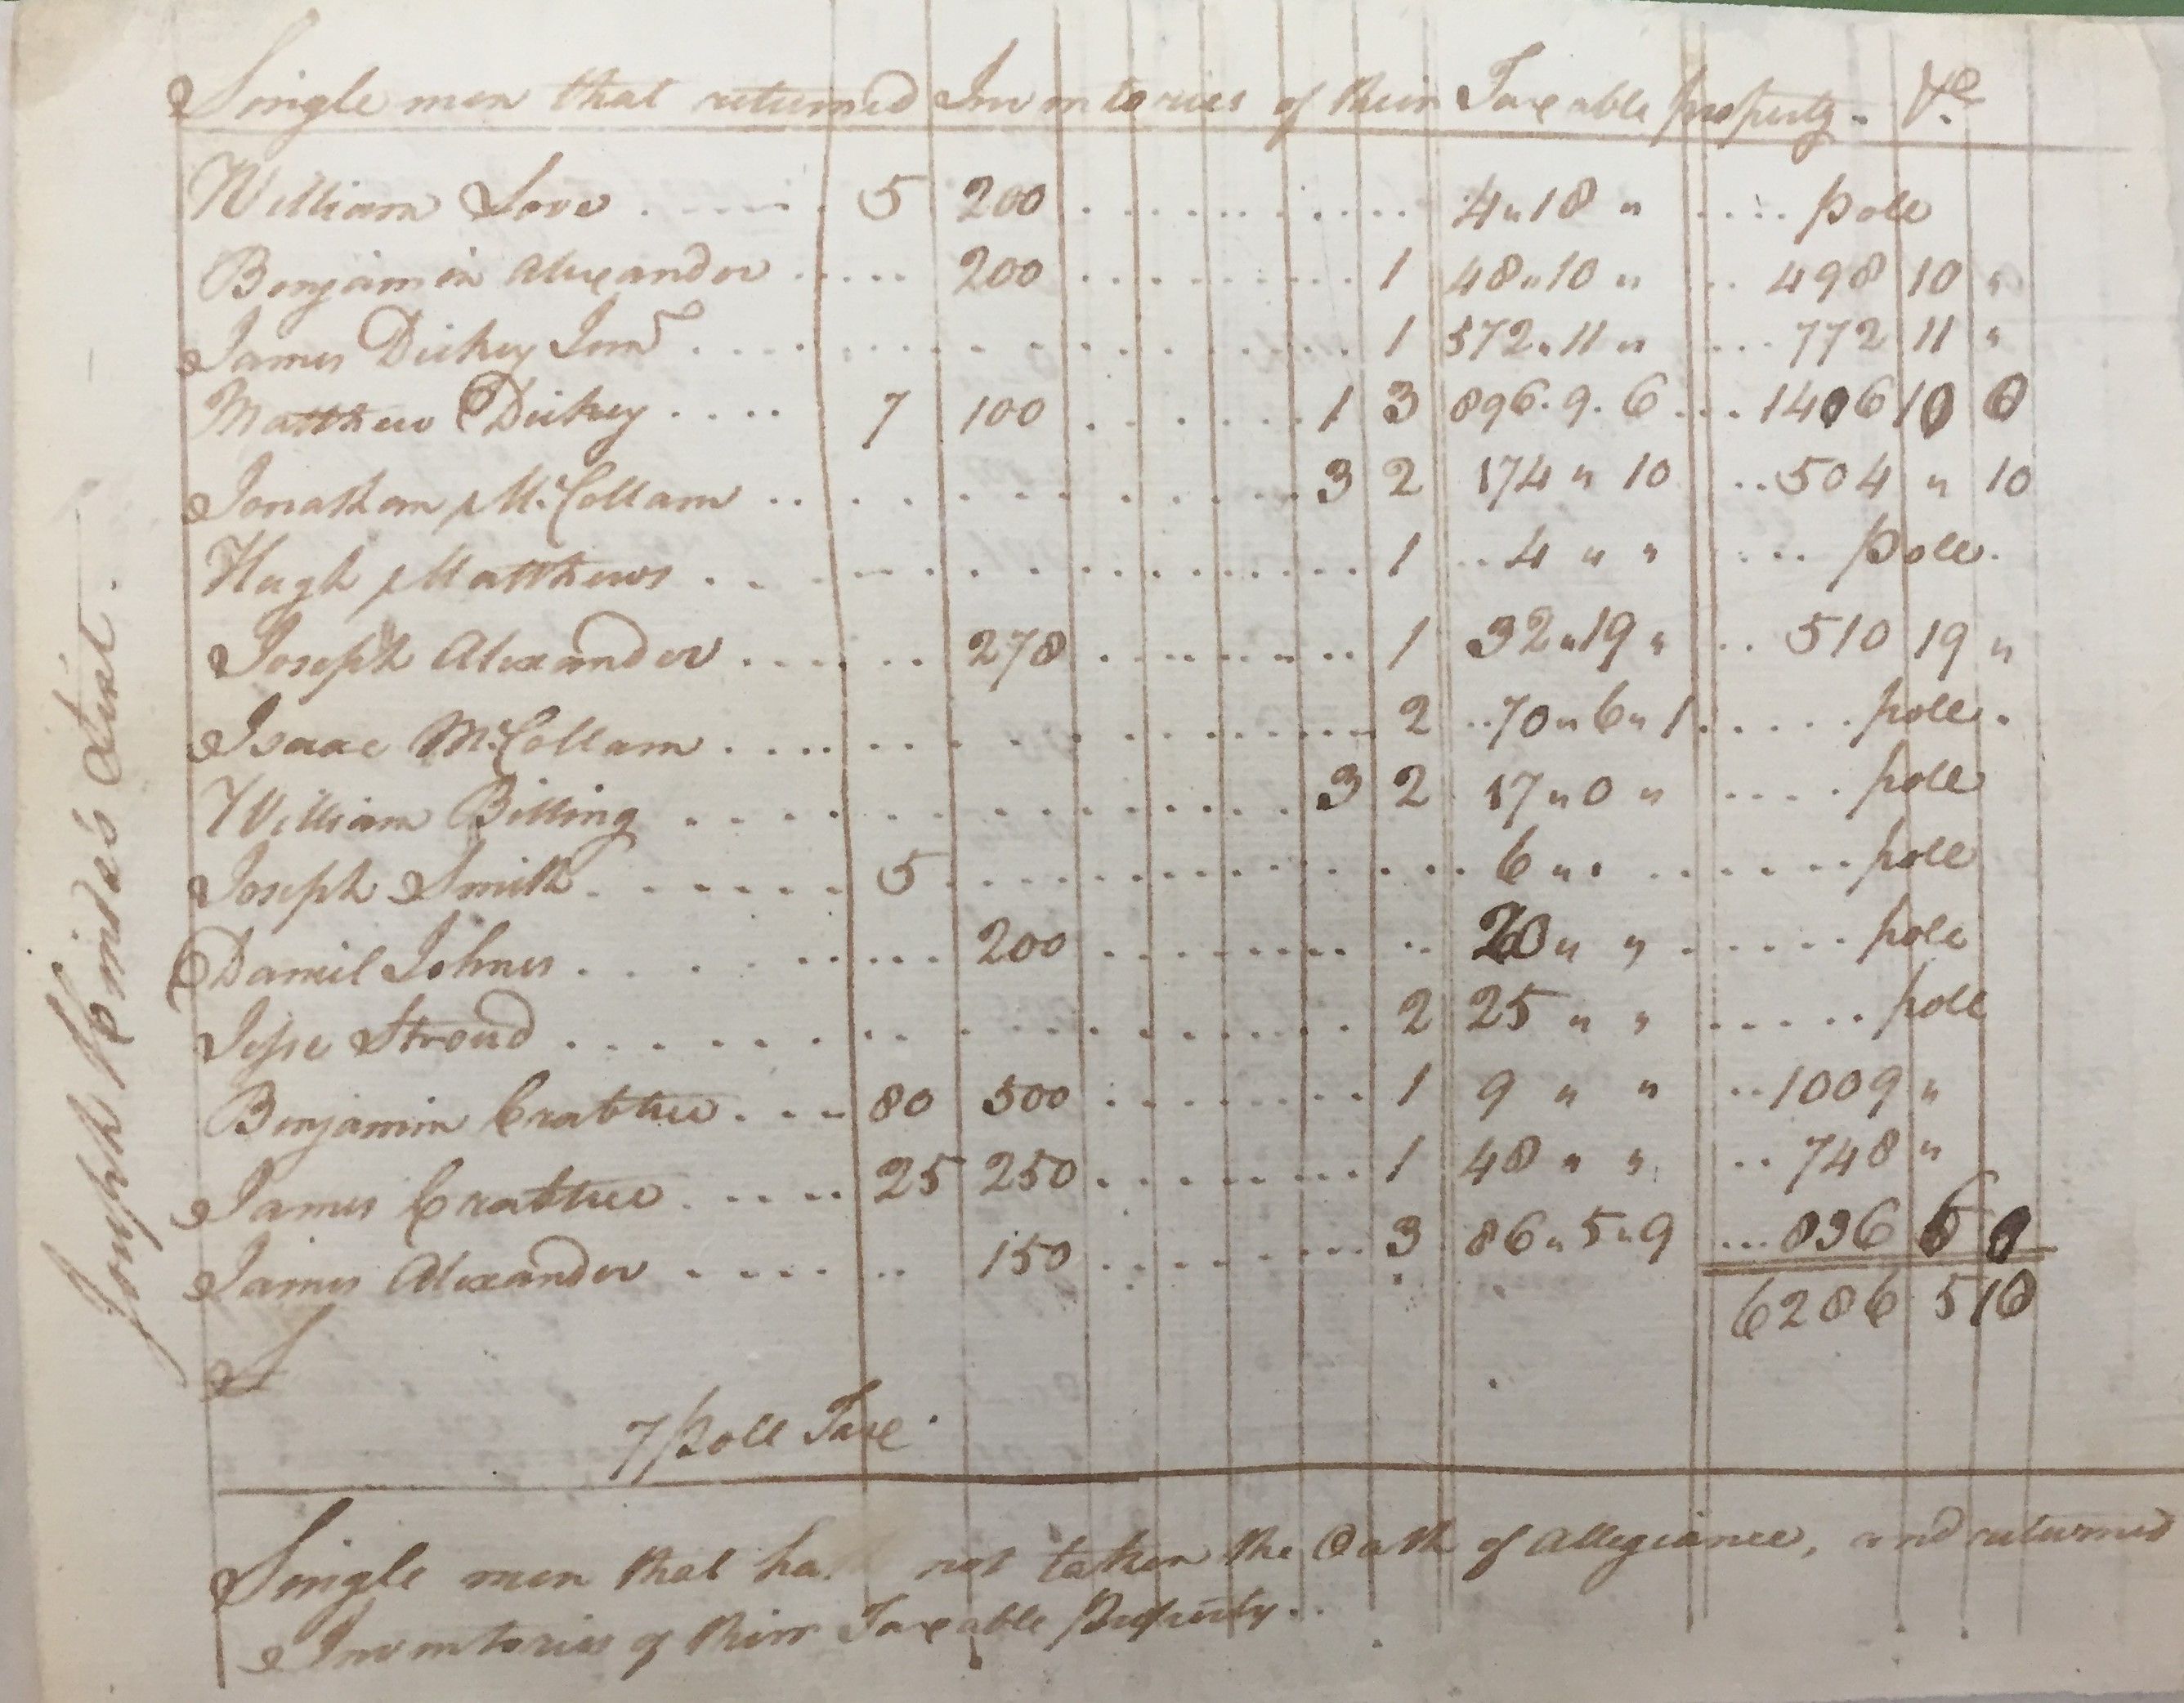 Single men that returned Inventories of their Taxeable property - &c
William Love ..... 5 200 ........... 4 " 18 " .... poll
Benjamin Alexander ..... 200 ......... 1 48 " 10 " .. 498 10 "
James Dickey Junr ............... 1 572 " 11 " ... 772 11 "
Matthew Dickey .... 7 100 ...... 1 3 896. 9. 6 ... 1406 10 6
Jonathan McCollam ........... 3 2 174 " 10 .. 504 " 10
Hugh Matthews ............. 1 .. 4 " " .... poll.
Joseph Alexander ...... 278 ........ 1 32 " 19 " .. 510 19 "
Isaac McCollam ............. 2 .. 70 " 6 " 1 ..... poll.
William Billing ............. 3 2 17 " 0 " .... poll
Joseph Smith ...... 5 .......... 6 " " ...... poll
Daniel Johnes ....... 200 ........ 20 " " ...... poll
Jesse Stroud ............. 2 25 " " ..... poll
Benjamin Crabtree ... 80 500 ........ 1 9 " " .. 1009 "
James Crabtree ..... 25 250 ........ 1 48 " " .. 748 "
James Alexander ...... 150 ....... 3 86 " 5 " 9 ... 836
6286 5 10
7 poll Taxe.
Single men that not taken the Oath of Allegiance, and returned
Inventories of their Taxeable Property..
Joseph List.